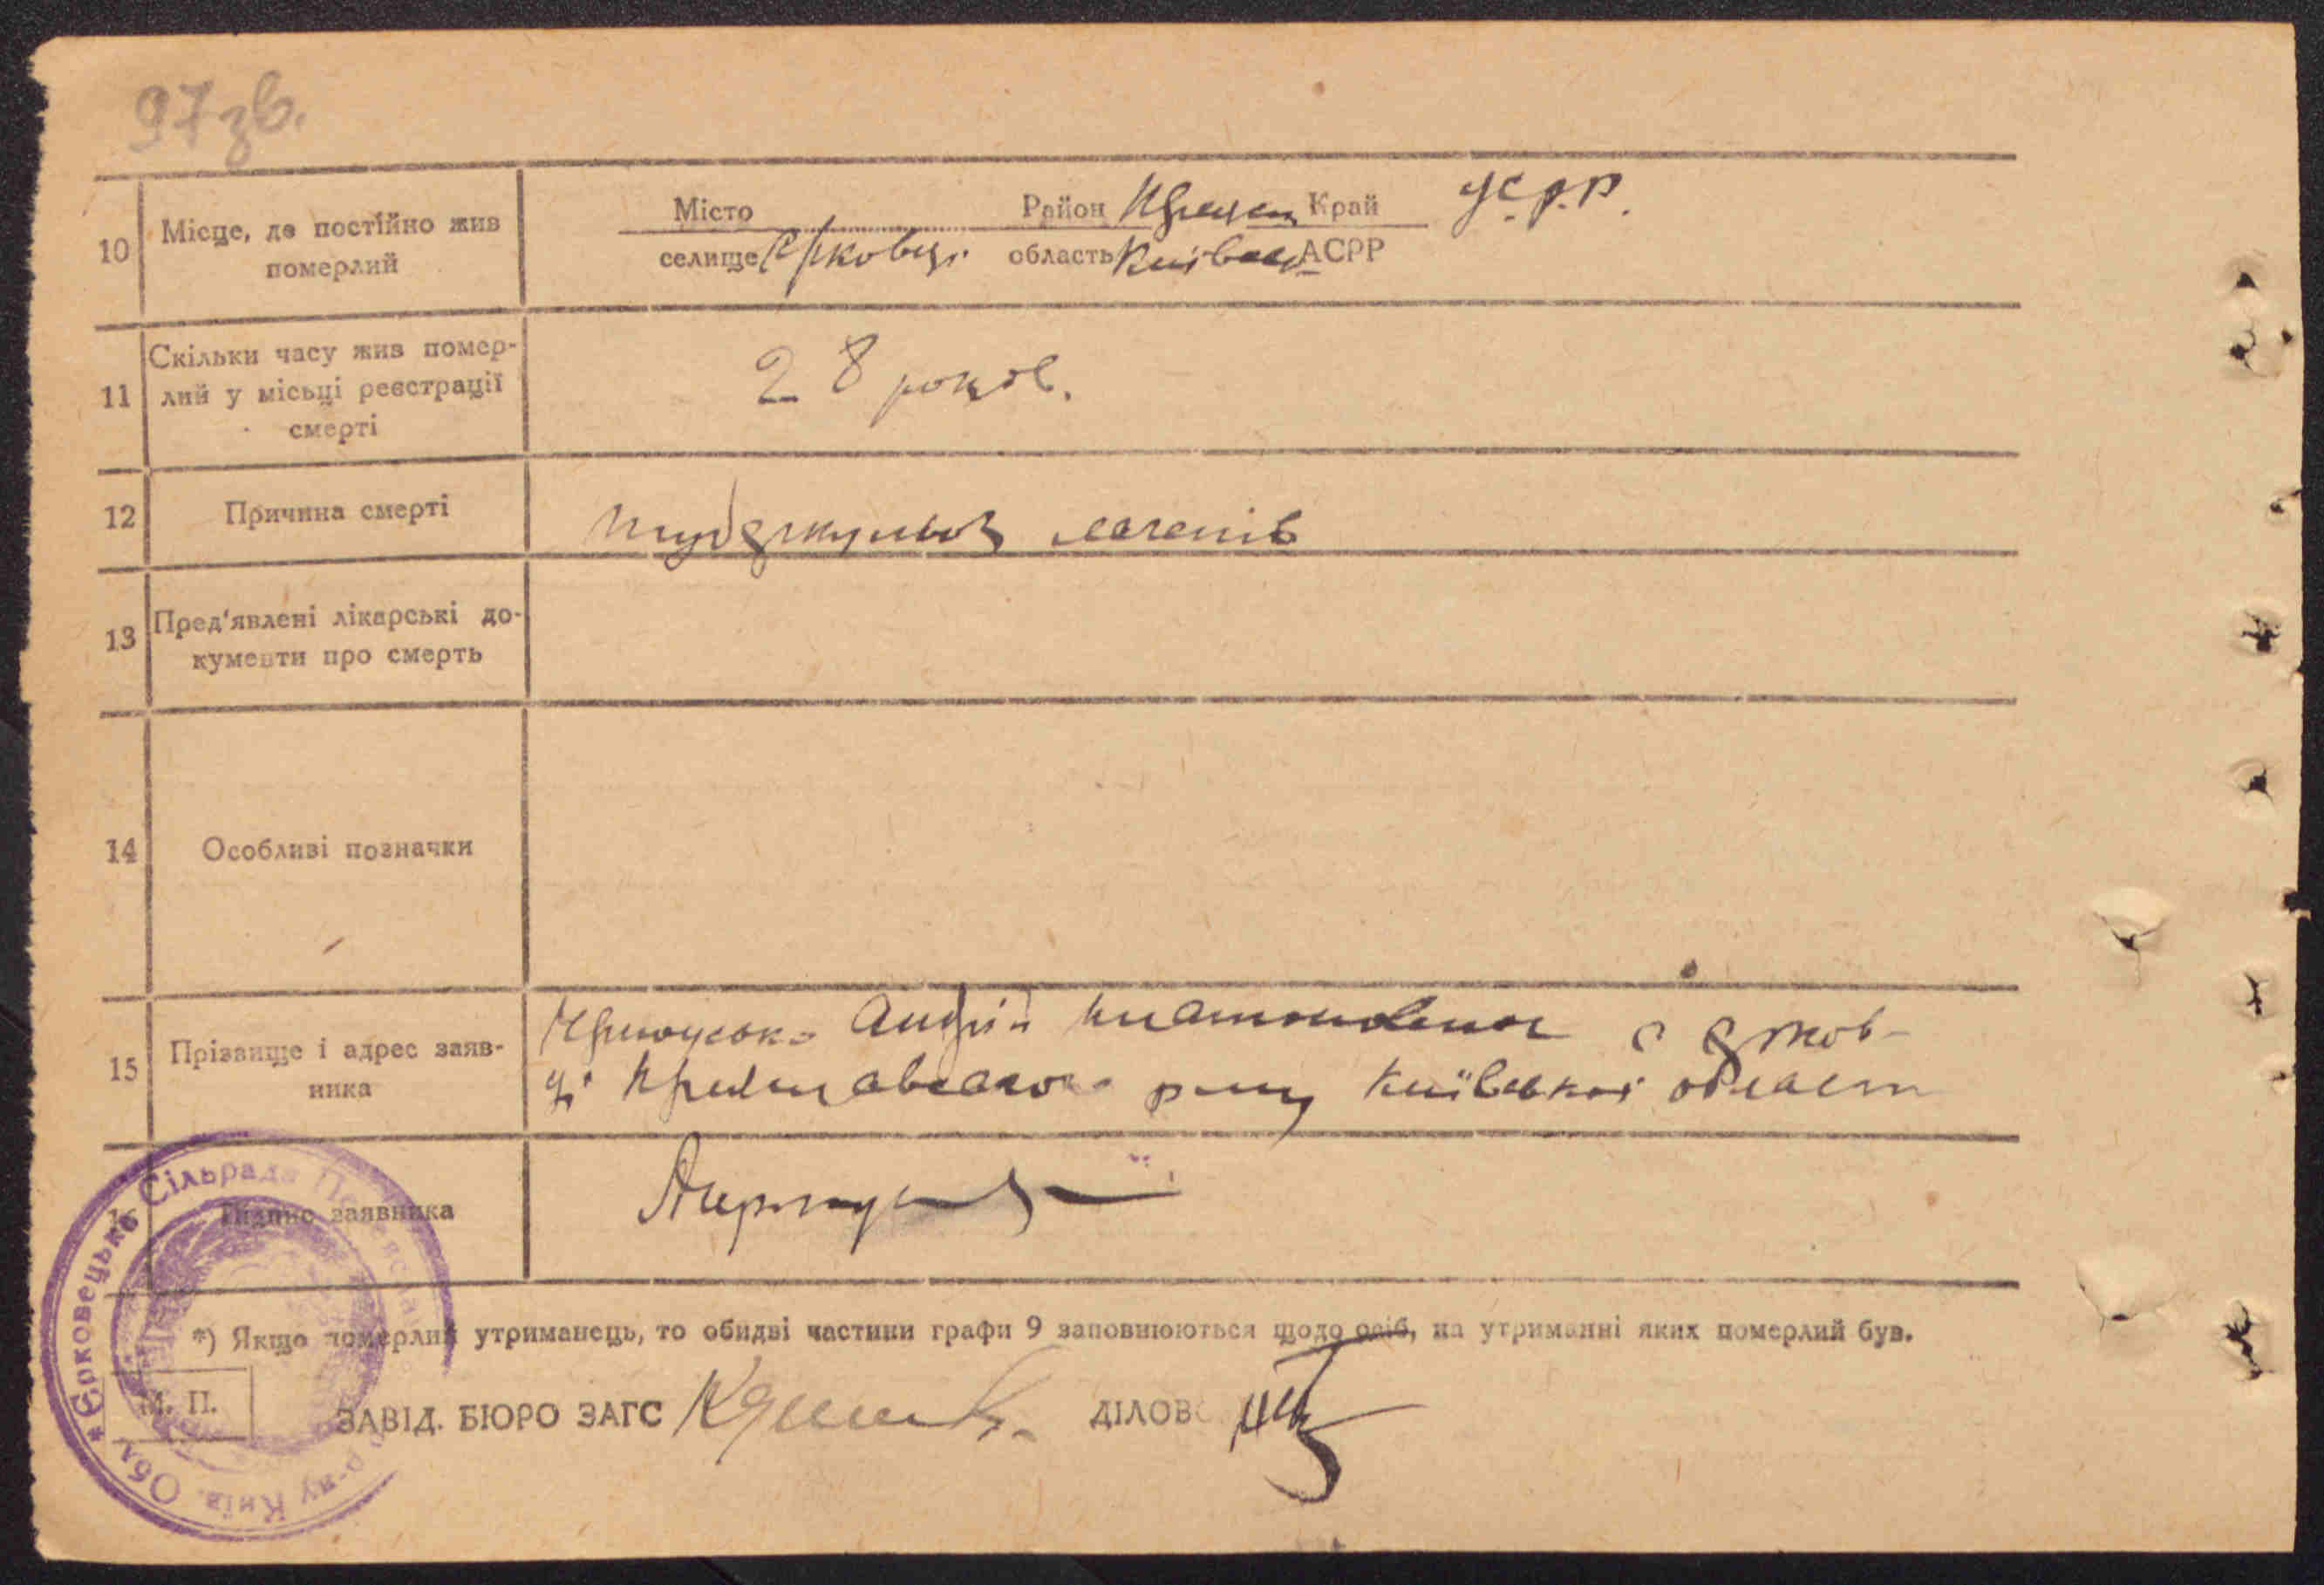 97 зв.
10 Місце, де постійно жив померлий
Місто Район Край УСРР.
селище область Київськ АСРР
11 Скільки часу жив помер-
лий у місьці реєстрації
смерті
28 років.
12 Причина смерті
туберкульоз легенів
13 Пред'явлені лікарські до-
кументи про смерть
14 Особливі позначки
15 Прізвище і адрес заяв-
ника
Андрій с Єрков-
ці р-ну Київської област
Підпис заявника
*) Якщо померлий утриманець, то обидві частини графи 9 заповнюються щодо осіб, на утриманні яких померлий був.
М. П.
ЗАВІД. БЮРО ЗАГС ДІЛОВ
* Єрковецька Сільрада Переяслав р-ну Київ. Обл